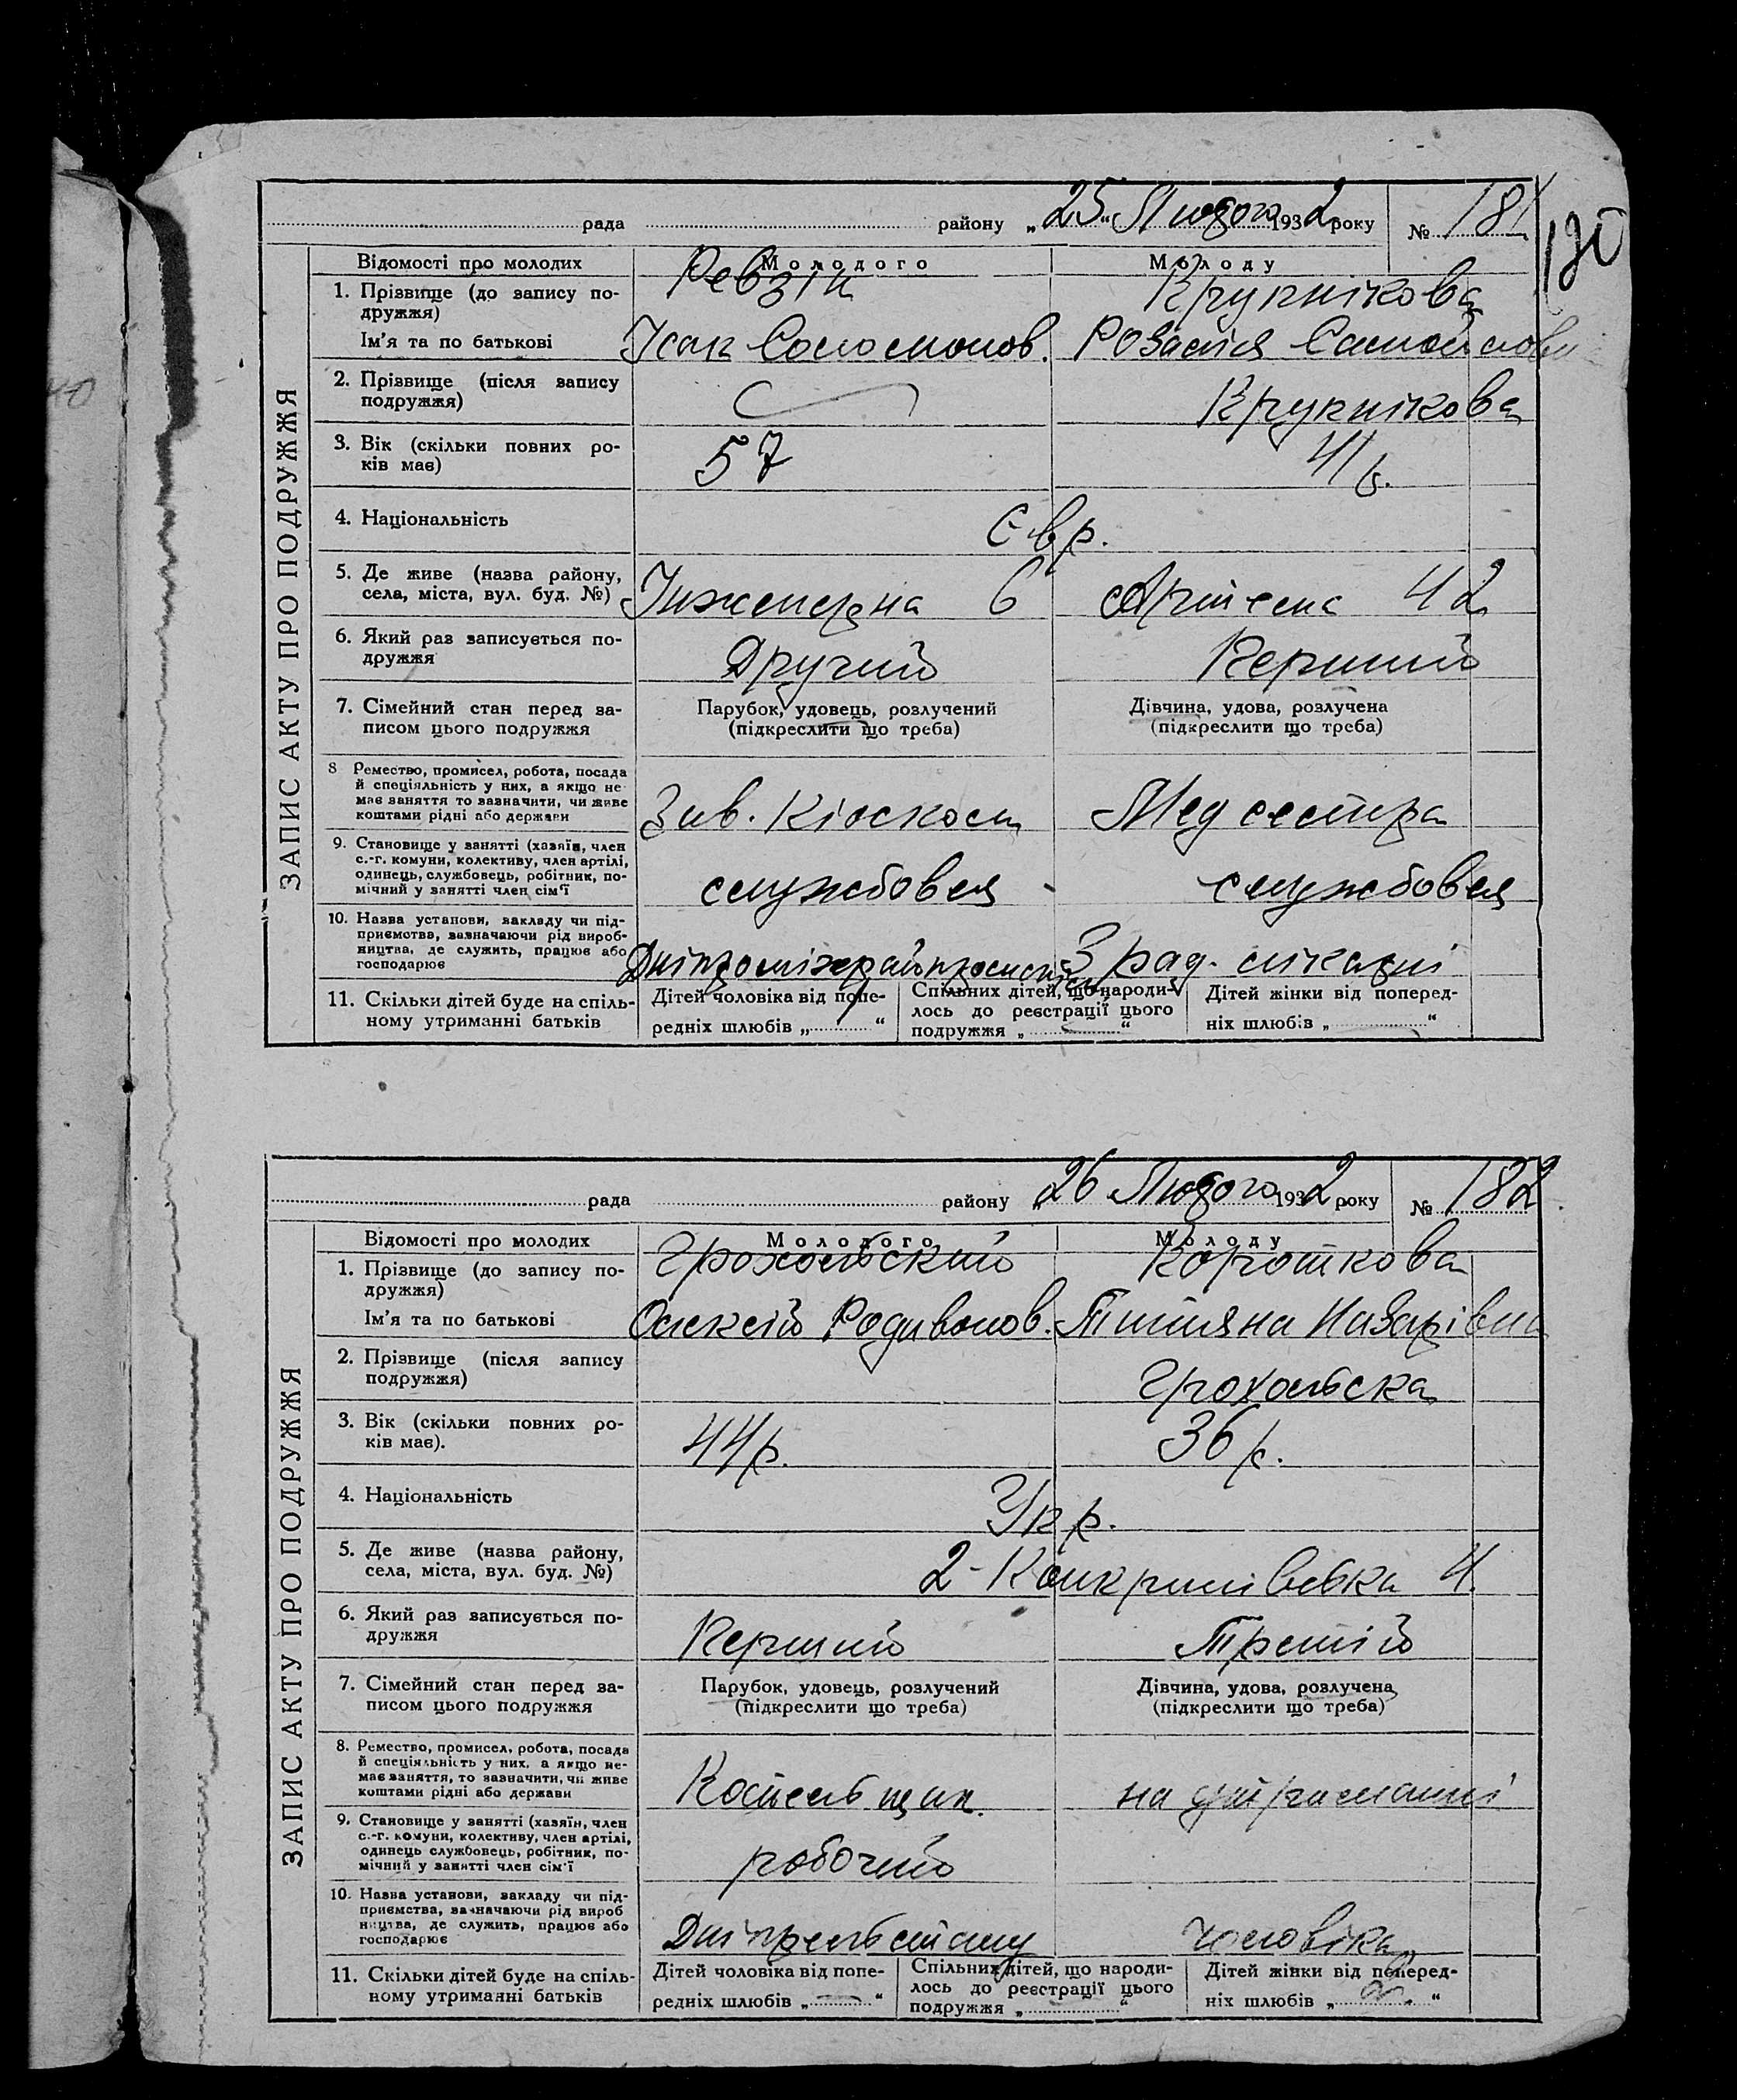 рада району „25“ Лютого 1932 року № 181
130
ЗАПИС АКТУ ПРО ПОДРУЖЖЯ
Відомості про молодих Молодого Молоду
1. Прізвище (до запису по-
дружжя) Ревзін Крупнікова
Ім'я та по батькові Ісак Соломонов. Розалія
2. Прізвище (після запису
подружжя) Крупнікова
3. Вік (скільки повних ро-
ків має) 57 41 р.
4. Національність Євр.
5. Де живе (назва району,
села, міста, вул. буд. №) Інженерна 6 Артема 42
6. Який раз записується по-
дружжя Другий Перший
7. Сімейний стан перед за-
писом цього подружжя
Парубок, удовець, розлучений
(підкреслити що треба)
Дівчина, удова, розлучена
(підкреслити що треба)
8 Ремество, промисел, робота, посада
й спеціяльність у них, а якщо не
має заняття то зазначити, чи живе
коштами рідні або держави
Зав. Кіоском Мед сестра
9. Становище у занятті (хазяїн, член
с.-г. комуни, колективу, член артілі,
одинець, службовець, робітник, по-
мічний у занятті член сім'ї
службовец службовец
10. Назва установи, закладу чи під-
приємства, зазначаючи рід вироб-
ництва, де служить, працює або
господарює
3 рад. лікарні
11. Скільки дітей буде на спіль-
ному утриманні батьків
Дітей чоловіка від попе-
редніх шлюбів „ “
Спільних дітей, що народи-
лось до реєстрації цього
подружжя „ “
Дітей жінки від поперед-
ніх шлюбів „ “
рада району „26 Лютого 1932 року № 182
ЗАПИС АКТУ ПРО ПОДРУЖЖЯ
Відомості про молодих Молодого Молоду
1. Прізвище (до запису по-
дружжя) Грохольский Короткова
Ім'я та по батькові Олексій Родивонов. Тетяна Назарівна
2. Прізвище (після запису
подружжя) Грохольска
3. Вік (скільки повних ро-
ків має). 44 р. 36 р.
4. Національність Укр.
5. Де живе (назва району,
села, міста, вул. буд. №) 2- 4.
6. Який раз записується по-
дружжя Перший Третій
7. Сімейний стан перед за-
писом цього подружжя
Парубок, удовець, розлучений
(підкреслити що треба)
Дівчина, удова, розлучена
(підкреслити що треба)
8. Ремество, промисел, робота, посада
й спеціяльність у них, а якщо не-
має заняття, то зазначити, чи живе
коштами рідні або держави
Котельщик на утриманні
9. Становище у занятті (хазяїн, член
с.-г. комуни, колективу, член артілі,
одинець службовець, робітник, по-
мічний у занятті член сім'ї
робочий
10. Назва установи, закладу чи під-
приємства, зазначаючи рід вироб
ництва, де служить, працює або
господарює
Дніпрельстану чоловіка
11. Скільки дітей буде на спіль-
ному утриманні батьків
Дітей чоловіка від попе-
редніх шлюбів „ “
Спільних дітей, що народи-
лось до реєстрації цього
подружжя „ “
Дітей жінки від поперед-
ніх шлюбів „ 2 “